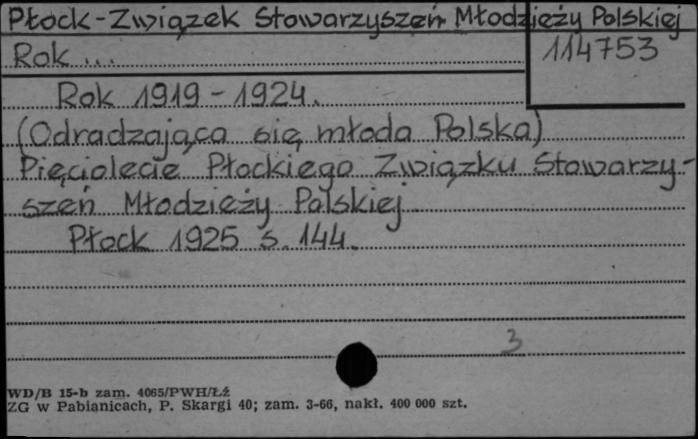 Płock-Związek Stowarzyszeń Młodzieży Polskiej
Rok ...
114753
Rok 1919-1924.
(Odradzająca się młoda Polska)
Pięciolecie Płockiego Związku Stowarzy-
szeń Młodzieży Polskiej
Płock 1925 s. 144.
3
WD/B 15-b zam. 4065/PWH/Łź
ZG w Pabianicach, P. Skargi 40; zam. 3-66, nakł. 400 000 szt.